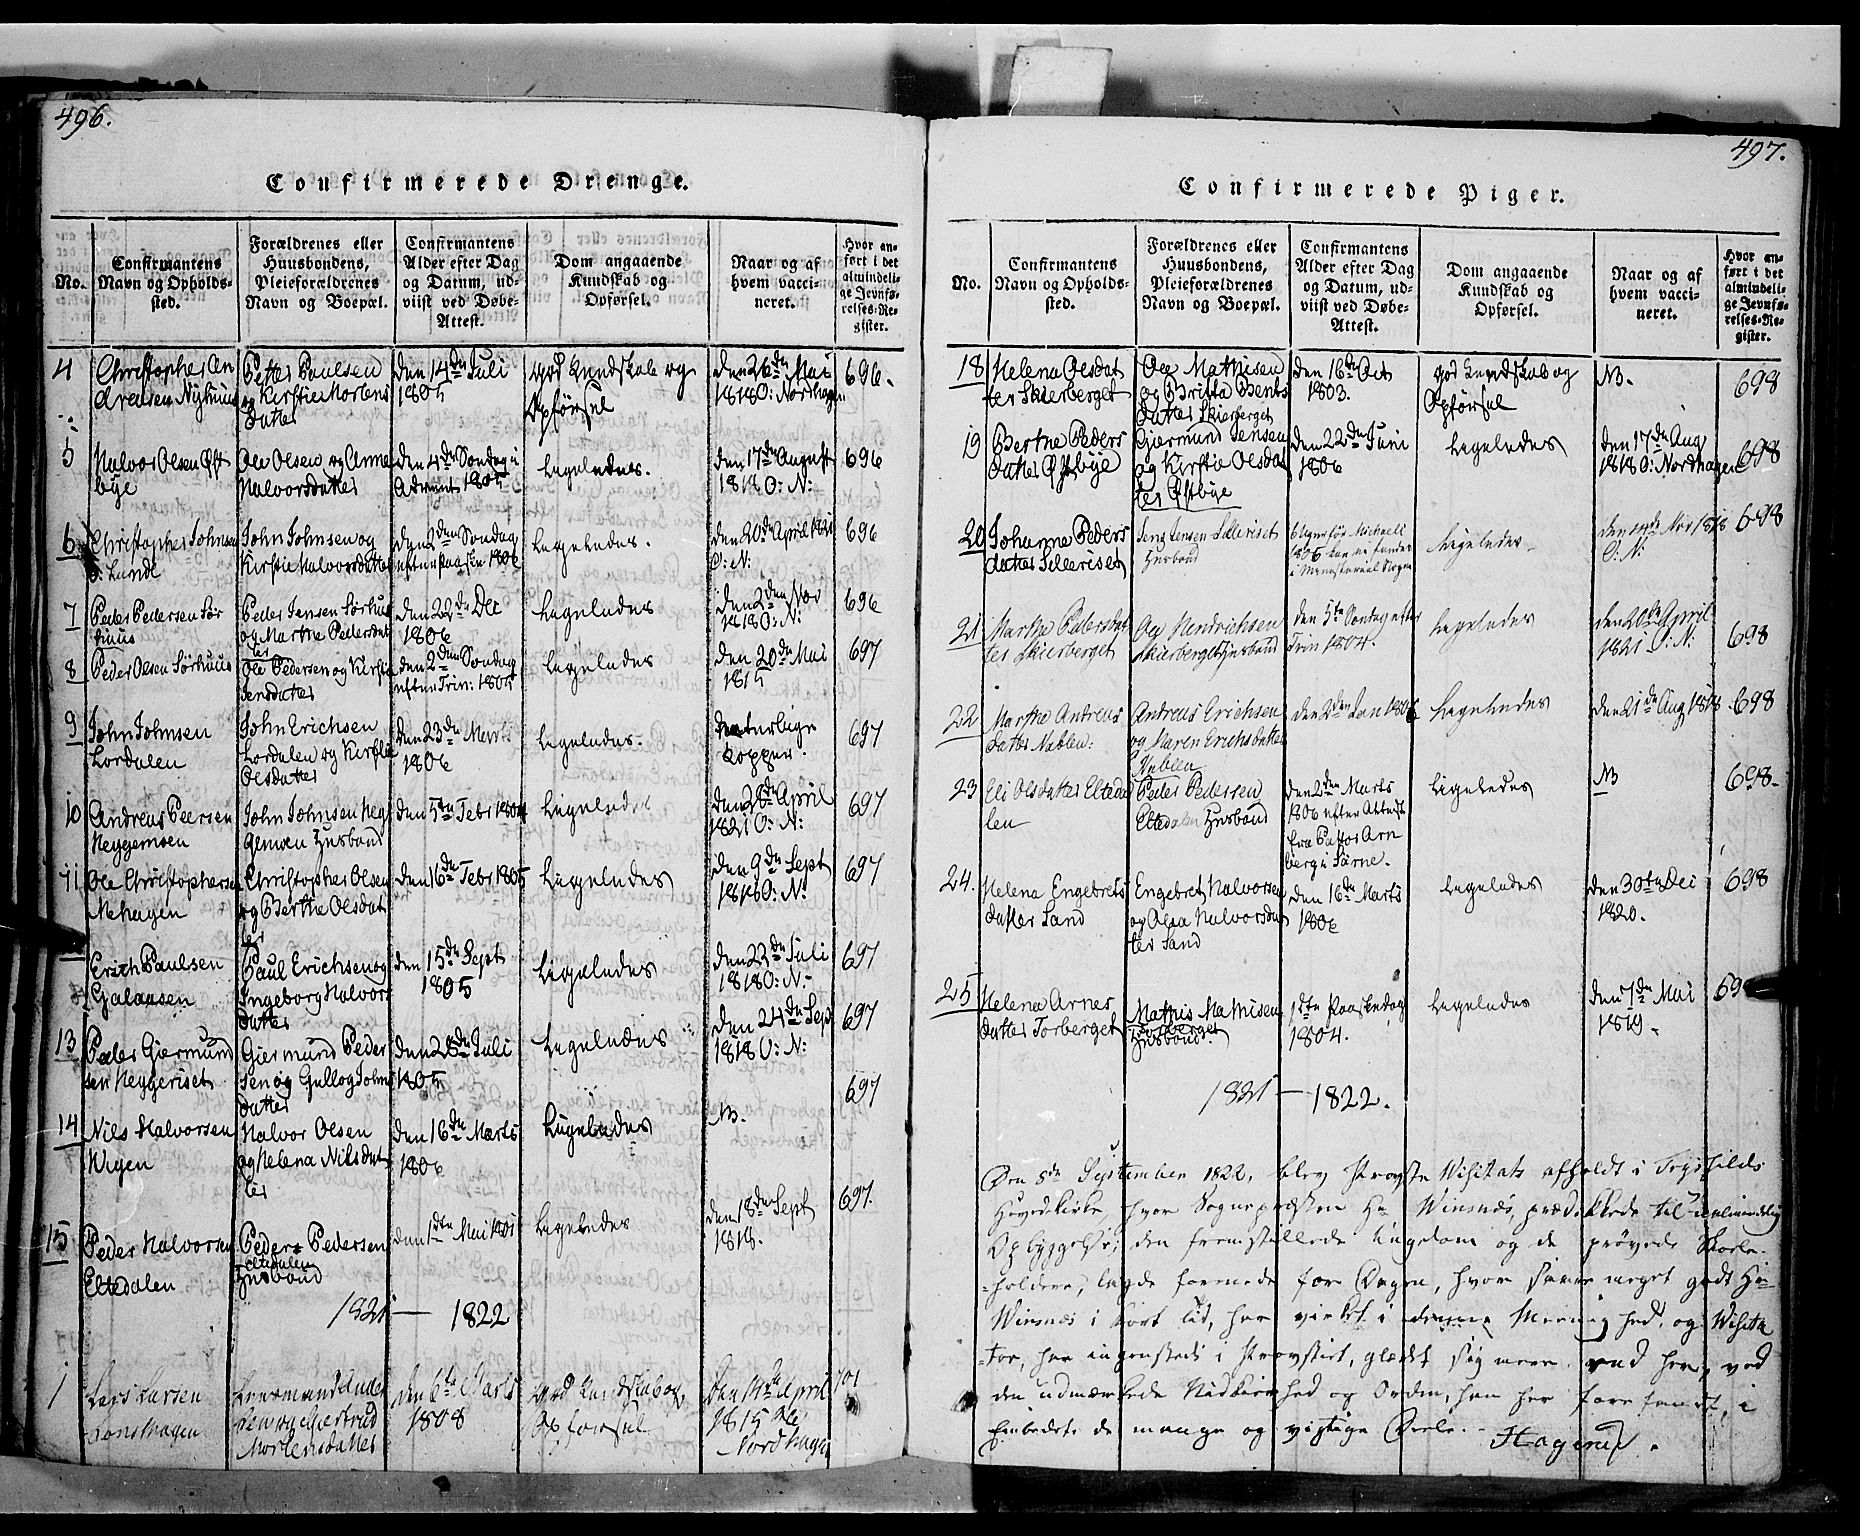 496.
Confirmerede Drenge.
No.
Confirmantens
Navn og Opholds-
sted.
Forældrenes eller
Huusbondens,
Pleieforældrenes
Navn og Boepæl.
Confirmantens
Alder efter Dag
og Datum, ud-
viist ved Døbe-
Attest.
Dom angaaende
Kundskab og
Opførsel.
Naar og af
hvem vacci-
neret.
Hvor an-
ført i det
almindeli-
ge Jevnfø-
relses-Re-
gister.
4
Christopher An
dreasen Nyhuus
Petter Paulsen
og Kirstie Mortens
datter
den 14de Juli
1805
god Kundskab og
Opførsel
den 26de Mai
1818 O: Nordhagen
696.
5
Halvor Olsen Øst
bye
Ole Olsen og Anne
Halvorsdatter
den 4de Søndag i
Advent 1805
Ligeledes.
den 17de August
1818 O: N:
696
6
Christopher Johnsen
Lunde
John Johnsen og
Kirstie Halvorsdatter
den 2den Søndag
efter Paaske 1806
Ligeledes.
den 20de April 1821
O: N:
696
7
Peder Pedersen Sør
huus
Peder Jensen Sørhuus
og Marthe Pedersdat
ter
den 22de Dec
1806
Ligeledes
den 2den Nov
1818 O: N:
696
8
Peder Olsen Sørhuus
Ole Pedersen og Kirstie
Jensdatter
den 2den Søndag
efter Trin: 1805
Ligeledes
den 20de Mai
1815
697
9
John Johnsen
Lordalen
John Erichsen
Lordalen og Kirstie
Olsdatter
den 23de Marts
1806
Ligeledes.
naturlige
Kopper.
697
10
Andreas Peersen
Heggemoen
John Johnsen Heg
gemoen Husbond
den 5te Febr 1804
Ligeledes
den 28de April
1821 O: N:
697
11
Ole Christophersen
Mehagen
Christopher Olsen
og Berthe Olsdat
ter
den 16de Febr 1805
Ligeledes
den 9de Sept
1818 O: N:
697
Erich Paulsen
Galaasen
Paul Erichsen og
Ingeborg Halvors
datter
den 15de Sept
1805
Ligeledes
den 22de Juli
1818 O: N:
697
13
Peder Giermund
sen Heggeriset
Giermund Peder
sen og Gullog Johns
datter
den 28de Juli
1805
Ligeledes
den 24de Sept
1818 O: N:
697
14
Nils Halvorsen
Wigen
Halvor Olsen
og Helena Nilsdat
ter
den 16de Marts
1806
Ligeledes
NB.
697
15
Peder Halvorsen
Eltedalen
Peder Pedersen
Eltedalen
Husbond
den 1ste Mai 1801
Ligeledes
den 18de Sept
1818.
697.
1821 — 1822
1
Lars Larsen
Lars
og Giertrud
Mortensdatter
den 6te Marts
1808
god Kundskab og
Opførsel
den 14de April
1815 O:
Nordhagen
701
497.
Confirmerede Piger.
No.
Confirmantens
Navn og Opholds-
sted.
Forældrenes eller
Huusbondens,
Pleieforældrenes
Navn og Boepæl.
Confirmantens
Alder efter Dag
og Datum, ud-
viist ved Døbe-
Attest.
Dom angaaende
Kundskab og
Opførsel.
Naar og af
hvem vacci-
neret.
Hvor an-
ført i det
almindeli-
ge Jevnfø-
relses-Re-
gister.
18
Helena Olesdat
ter Skierberget
Ole Mathisen
og Britta Bents
datter Skierberget
den 16de Oct
1803.
god Kundskab og
Opførsel
NB.
698
19
Berthe Peders
datter Østbye
Giermund Jensen
og Kirstie Olsdat
ter Østbye
den 22de Juni
1806
Ligeledes
den 17de Aug
1818 O: Nordhagen
698
20
Johanna Peders
datter Selleriset
Jens Jensen Selleriset
Husbond
6 Uger før Michaeli
1805 kan ei findes
i Ministerial Bogen
Ligeledes
den 14de Nov 1818
O: N:
698
21
Marthe Pedersdat
ter Skierberget
Ole Hendrichsen
Skierberget Husbond
den 5te Søndag efter
Trin 1804.
Ligeledes
den 20de April
1821 O: N:
698
22
Marthe Andreas
datter Nablen:
Andreas Erichsen
og Maren Erichsdatter
Nablen
den 2den Jan 1806
Ligeledes
den 21de Aug 1818
698
23
Eli Olsdatter Elteda
len
Peder Pedersen
Eltedalen Husbond
den 2den Marts
1806 efter Attest
fra Pastor Arn
berg i Særne.
Ligeledes
NB
698.
24.
Helena Engebrets
datter Sand
Engebret Halvorsen
og Olea Halvorsdat
ter Sand
den 16de Marts
1806
Ligeledes
den 30te Dec
1820.
698
25
Helena Arnes
datter Torberget
Mathis Mathisen
Torberget
Husbond.
1ste Paaskedag
1804.
Ligeledes
den 7de Mai
1819.
69
1821 — 1822.
Den 8de September 1822, blev Provste Visitats afholdt i Trysilds
Hovedkirke, hvor Sognepræsten Hr Winsnes, prædikkede til almindelig
Opbyggelse; den fremstillede Ungdom og de prøvede Skole-
holdere, lagde for Dagen, hvor meget godt Hr
Winsnes i kort tid, har virket i denne Menighed, og Visita
tor, har ingensteds i Provstiet, glædet sig mere, end her, ved
den udmærkede Nidkierhed og Orden, han her forefandt, i
Embedets mange og vigtige Deele.
Hagerup.